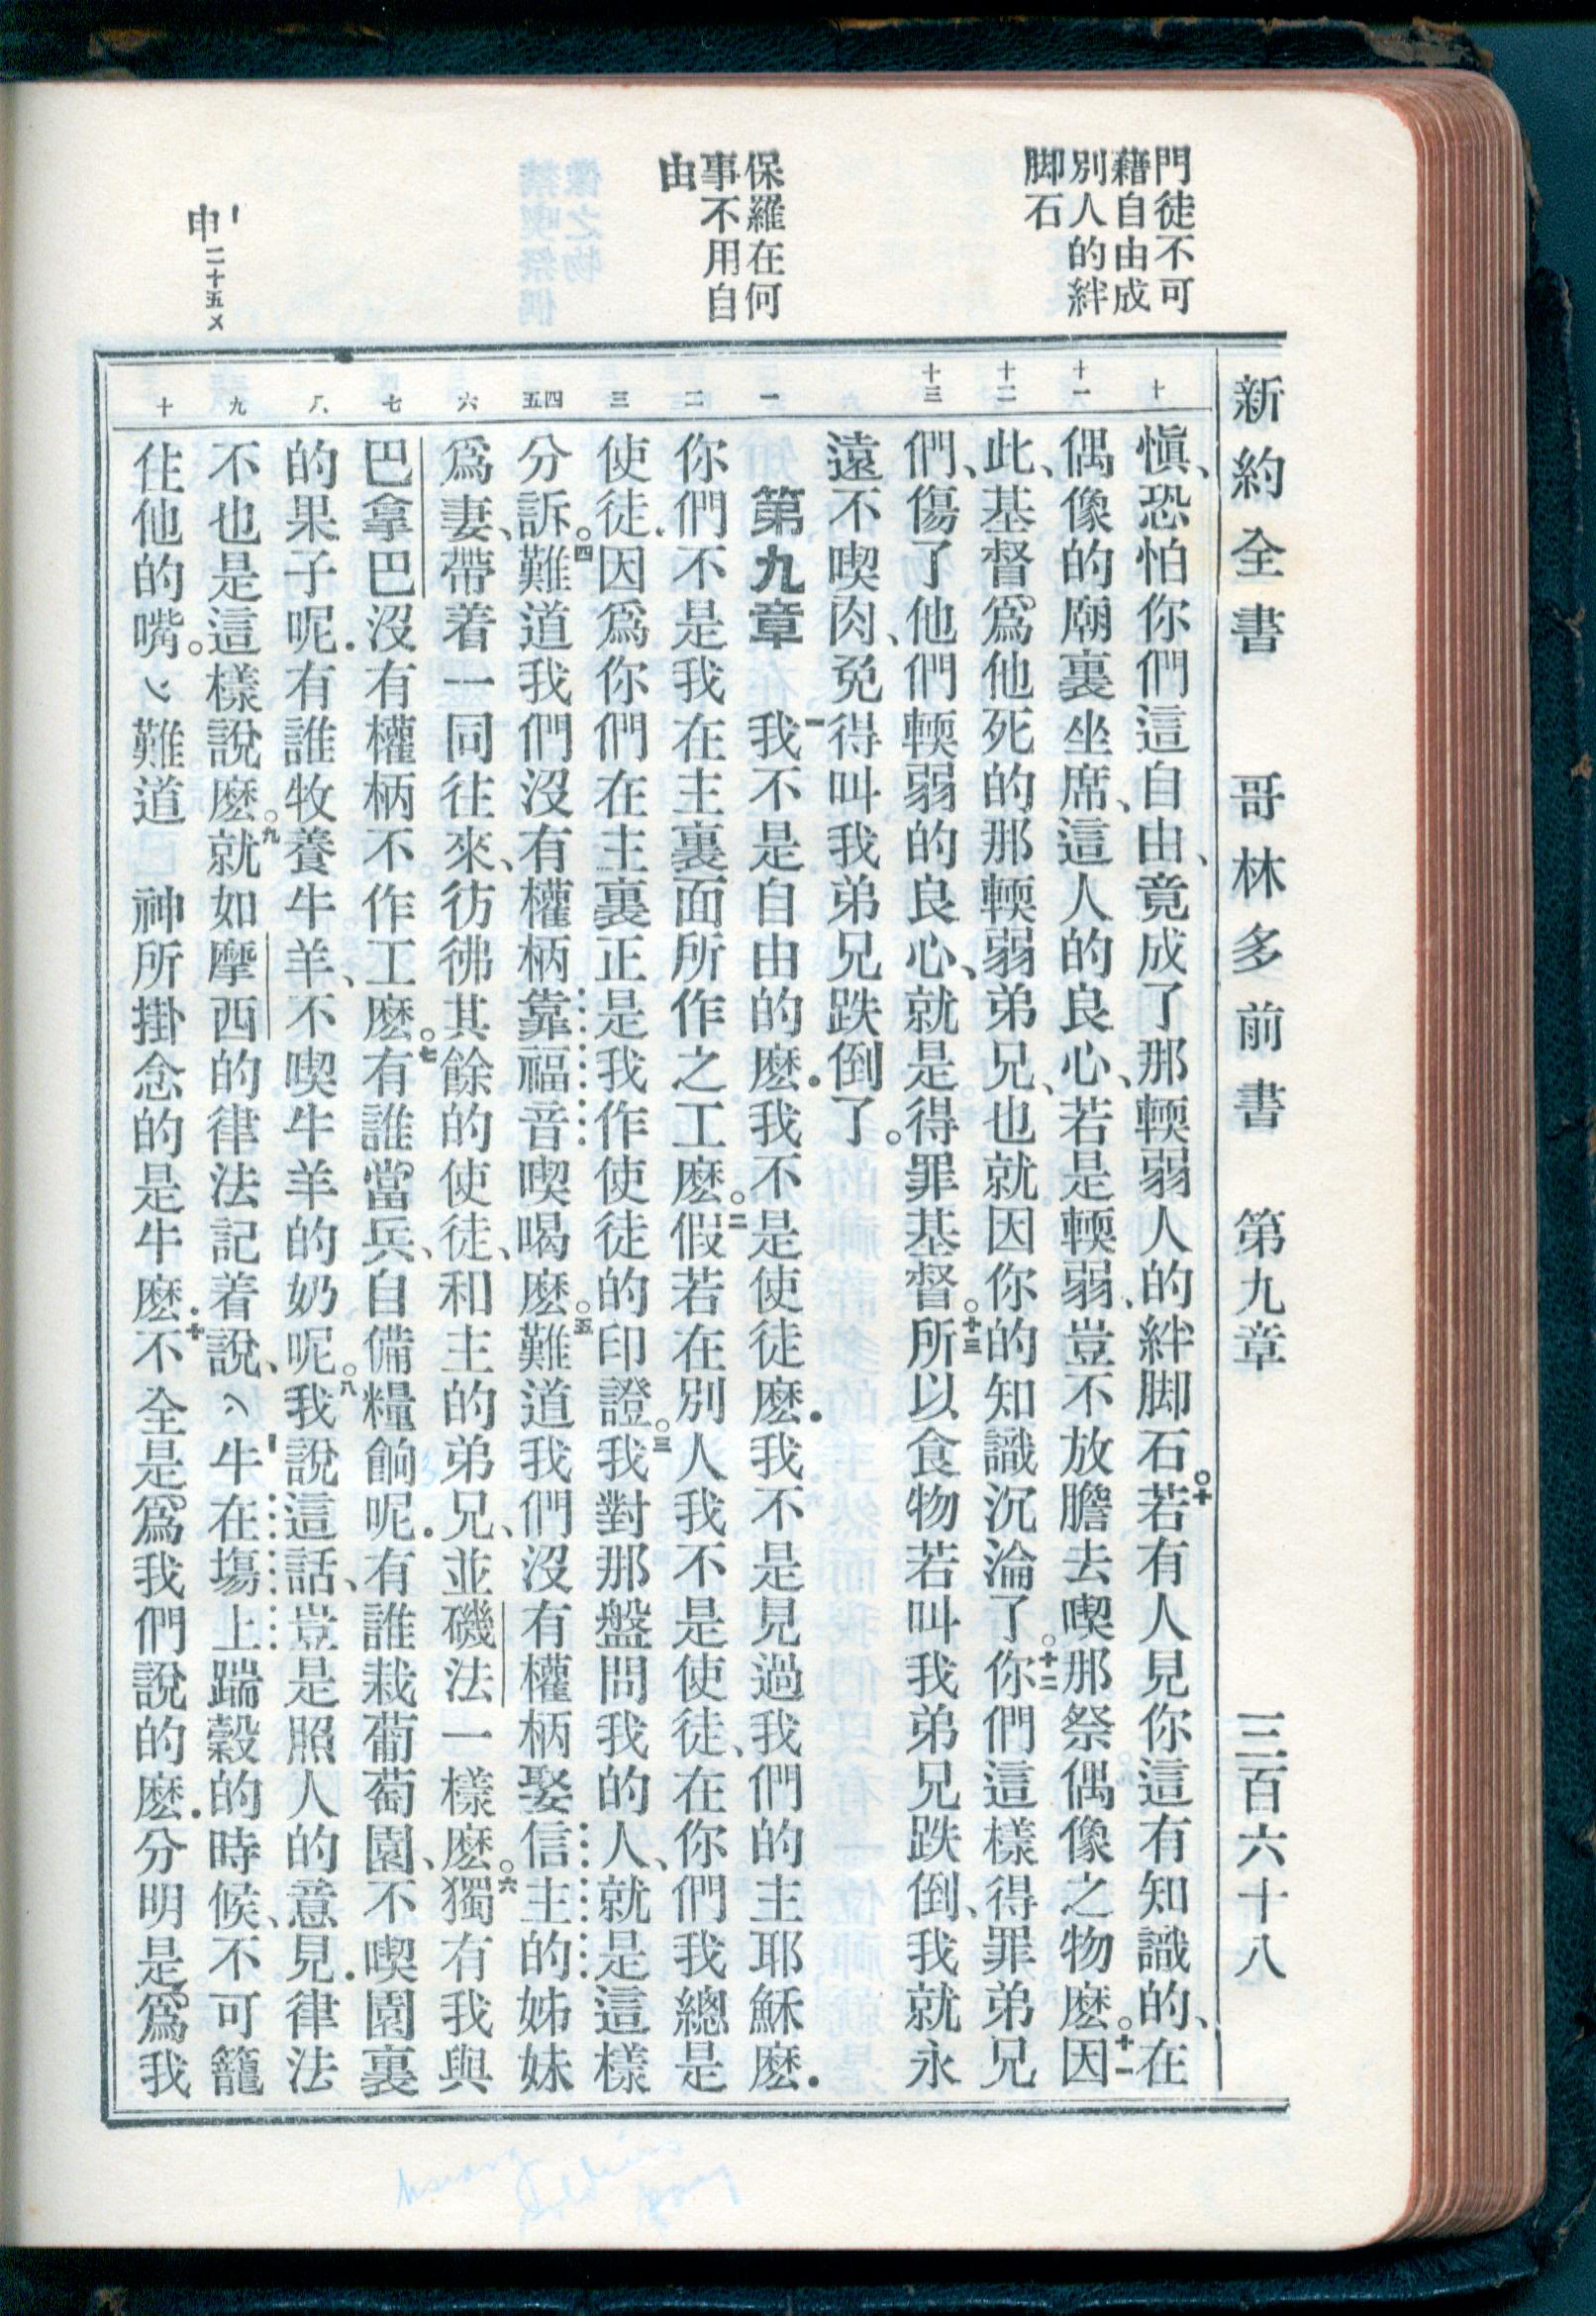 新約全書 哥林多前書 第九章 三百六十八
門徒不可
藉自由成
別人的絆
脚石
保羅在何
事不用自
由
申二十五〤
十
十一
十二
十三
一
二
三
四
五
六
七
八
九
十
愼、恐怕你們這自由、竟成了那輭弱人的絆脚石。十若有人見你這有知識的、在
偶像的廟裏坐席、這人的良心、若是輭弱、豈不放膽去喫那祭偶像之物麽。十一因
此、基督爲他死的那輭弱弟兄、也就因你的知識沉淪了。十二你們這樣得罪弟兄
們、傷了他們輭弱的良心、就是得罪基督。十三所以食物若叫我弟兄跌倒、我就永
遠不喫肉、免得叫我弟兄跌倒了。
第九章 一我不是自由的麽．我不是使徒麽．我不是見過我們的主耶穌麽．
你們不是我在主裏面所作之工麽。二假若在別人我不是使徒、在你們我總是
使徒．因爲你們在主裏正是我作使徒的印證。三我對那盤問我的人、就是這樣
分訴。四難道我們沒有權柄靠福音喫喝麽。五難道我們沒有權柄娶信主的姊妹
爲妻、帶着一同往來、彷彿其餘的使徒、和主的弟兄、並磯法一樣麽。六獨有我與
巴拿巴沒有權柄不作工麽。七有誰當兵、自備糧餉呢．有誰栽葡萄園、不喫園裏
的果子呢．有誰牧養牛羊、不喫牛羊的奶呢。八我說這話、豈是照人的意見．律法
不也是這樣說麽。九就如摩西的律法記着說、牛在塲上踹穀的時候、不可籠
住他的嘴。難道 神所掛念的是牛麽．十不全是爲我們說的麽．分明是爲我